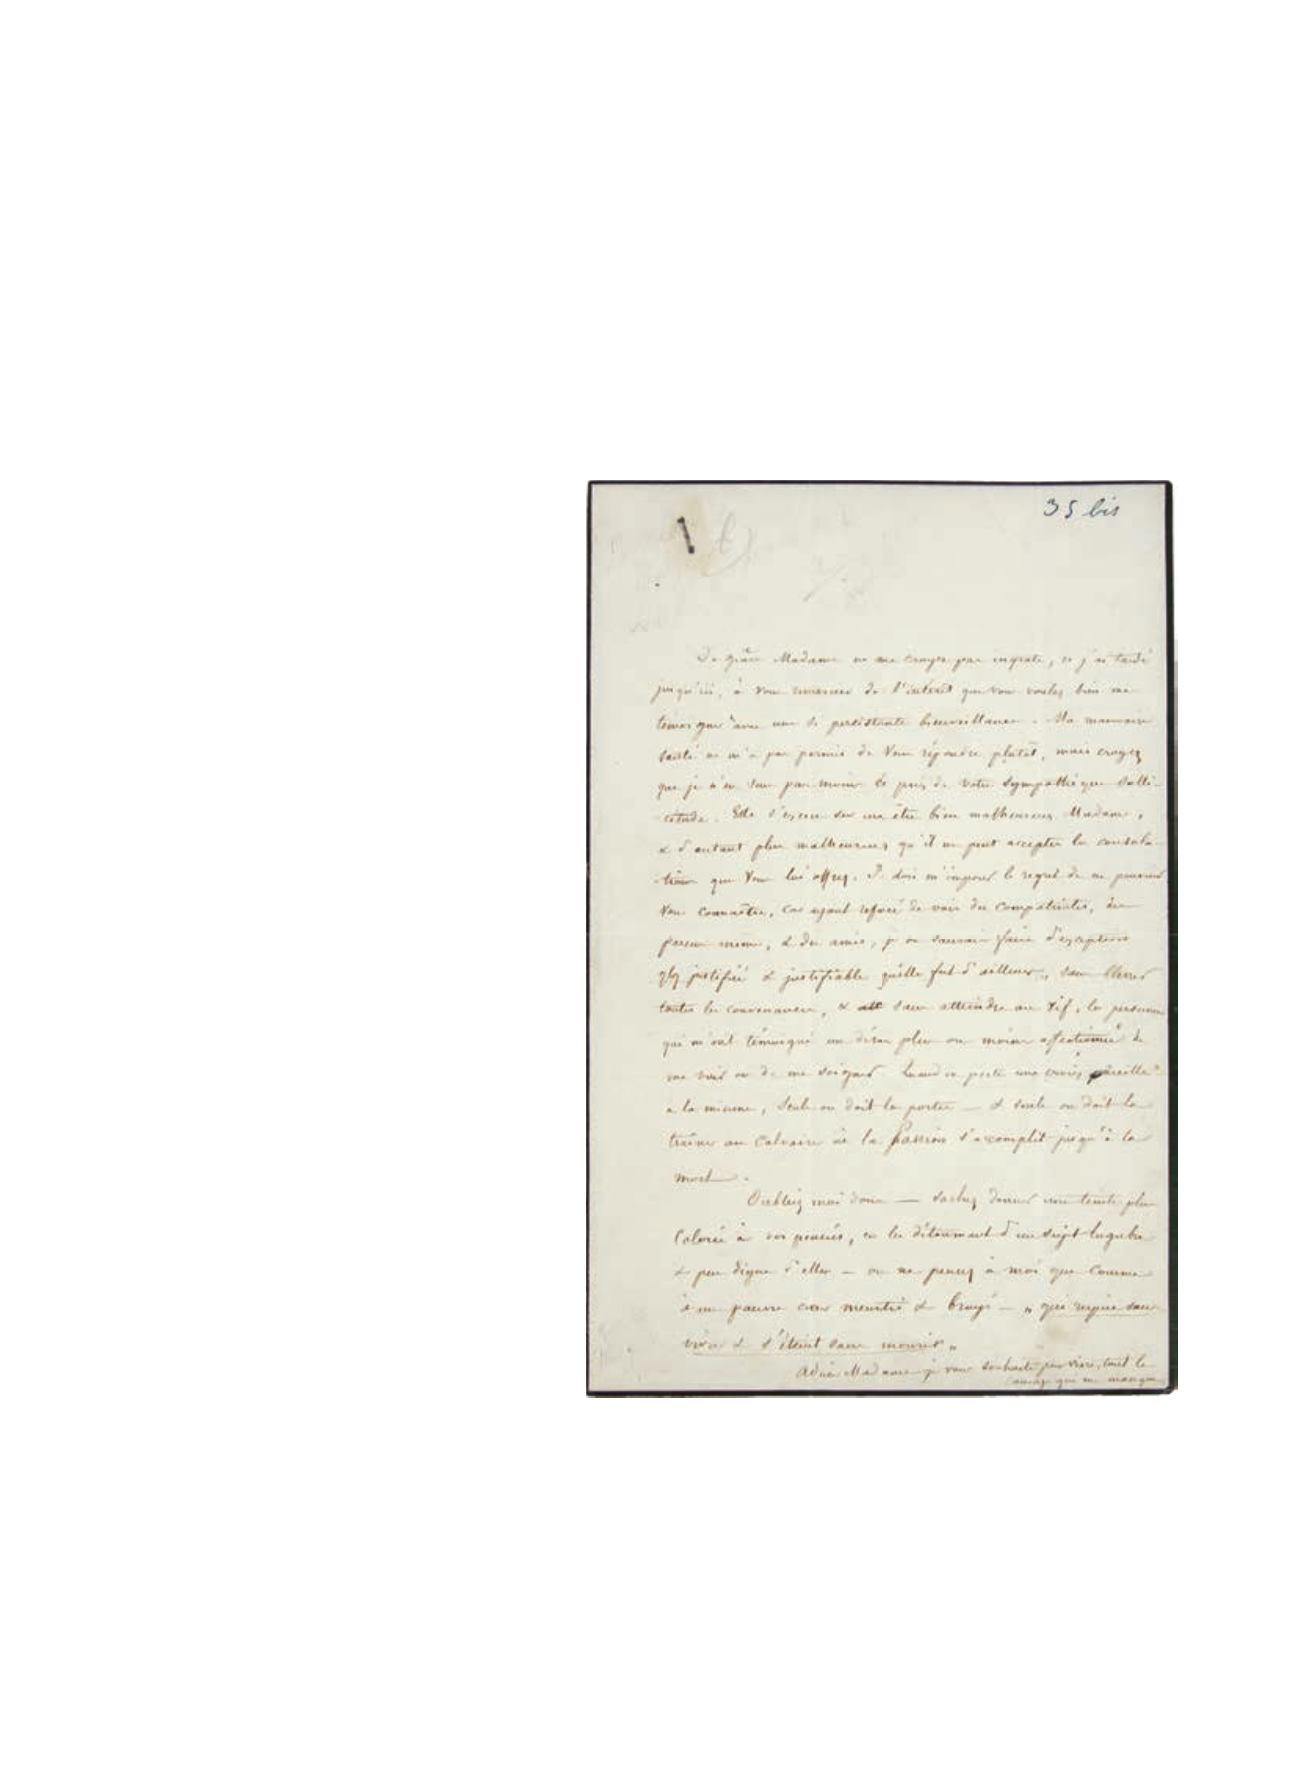 35 bis
De grâce Madame ne me croyez pas ingrate, si j'ai tardé
jusqu'ici, à vous remercier de l'intérêt que vous voulez bien me
témoigner avec une si persistante bienveillance. Ma mauvaise
santé ne m'a pas permis de vous répondre plutôt, mais croyez
que je n'en sens pas moins le prix de votre sympathique solli-
citude. Elle s'exerce sur un être bien malheureux Madame,
& d'autant plus malheureux qu'il ne peut accepter les consola-
tions que vous lui offrez. Je dois m'imposer le regret de ne pouvoir
vous connaître, car ayant refusé de voir des compatriotes, des
parens même, & des amis, je ne saurais faire d'exception
justifiée & justifiable qu'elle fut d'ailleurs, sans blesser
toutes les convenances, & sans atteindre au vif, les personnes
qui m'ont témoigné un désir plus ou moins affectionné de
me voir ou de me soigner. Quand on porte une croix pareille
à la mienne, seule on doit la porter — & seule on doit la
traîner au Calvaire où la Passion s'accomplit jusqu'à la
mort.
Oubliez moi donc — sachez donner une teinte plus
colorée à vos pensées, en les détournant d'un sujet lugubre
& peu digne d'elles — ou ne pensez à moi que comme
à un pauvre cœur meurtri & broyé — „qui respire sans
vivre & s'éteint sans mourir„
Adieu Madame je vous souhaite pour vivre, tout le
courage qui me manque